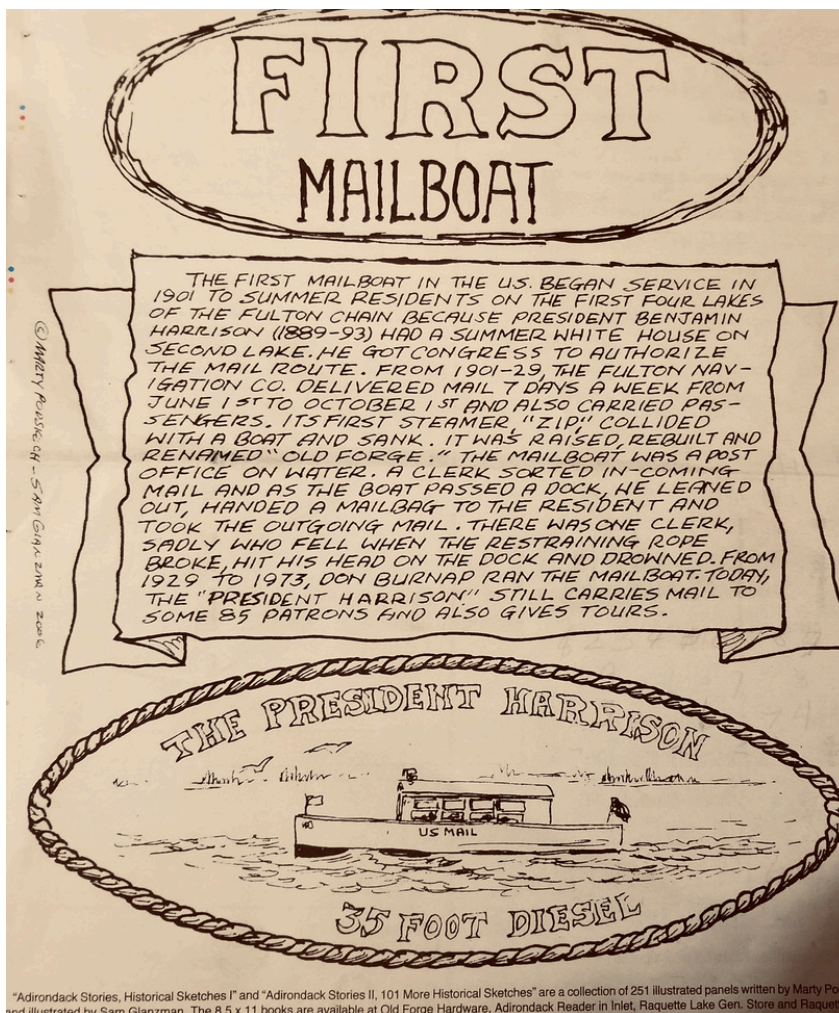 FIRST
MAILBOAT
THE FIRST MAILBOAT IN THE U.S. BEGAN SERVICE IN
1901 TO SUMMER RESIDENTS ON THE FIRST FOUR LAKES
OF THE FULTON CHAIN BECAUSE PRESIDENT BENJAMIN
HARRISON (1889-93) HAD A SUMMER WHITE HOUSE ON
SECOND LAKE. HE GOT CONGRESS TO AUTHORIZE
THE MAIL ROUTE. FROM 1901-29, THE FULTON NAV-
IGATION CO. DELIVERED MAIL 7 DAYS A WEEK FROM
JUNE 1ST TO OCTOBER 1ST AND ALSO CARRIED PAS-
SENGERS. ITS FIRST STEAMER, "ZIP" COLLIDED
WITH A BOAT AND SANK. IT WAS RAISED, REBUILT AND
RENAMED "OLD FORGE." THE MAILBOAT WAS A POST
OFFICE ON WATER. A CLERK SORTED IN-COMING
MAIL AND AS THE BOAT PASSED A DOCK, HE LEANED
OUT, HANDED A MAILBAG TO THE RESIDENT AND
TOOK THE OUTGOING MAIL. THERE WAS ONE CLERK,
SADLY WHO FELL WHEN THE RESTRAINING ROPE
BROKE, HIT HIS HEAD ON THE DOCK AND DROWNED. FROM
1929 TO 1973, DON BURNAP RAN THE MAILBOAT. TODAY,
THE "PRESIDENT HARRISON" STILL CARRIES MAIL TO
SOME 85 PATRONS AND ALSO GIVES TOURS.
© MARTY PODSKOCH - SAM GLANZMAN 2006
THE PRESIDENT HARRISON
US MAIL
35 FOOT DIESEL
"Adirondack Stories, Historical Sketches I" and "Adirondack Stories II, 101 More Historical Sketches" are a collection of 251 illustrated panels written by Marty Po
and illustrated by Sam Glanzman. The 8.5 x 11 books are available at Old Forge Hardware, Adirondack Reader in Inlet, Raquette Lake Gen. Store and Raquet